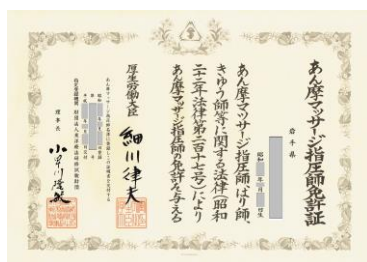 あん摩マッサージ指圧師免許証
岩手県
昭和 年 月 日生
あん摩マッサージ指圧師、はり師、
きゅう師等に関する法律(昭和
二十二年法律第二百十七号)により
あん摩マッサージ指圧師の免許を与える
厚生労働大臣 細川律夫
理事長 小早川隆敏